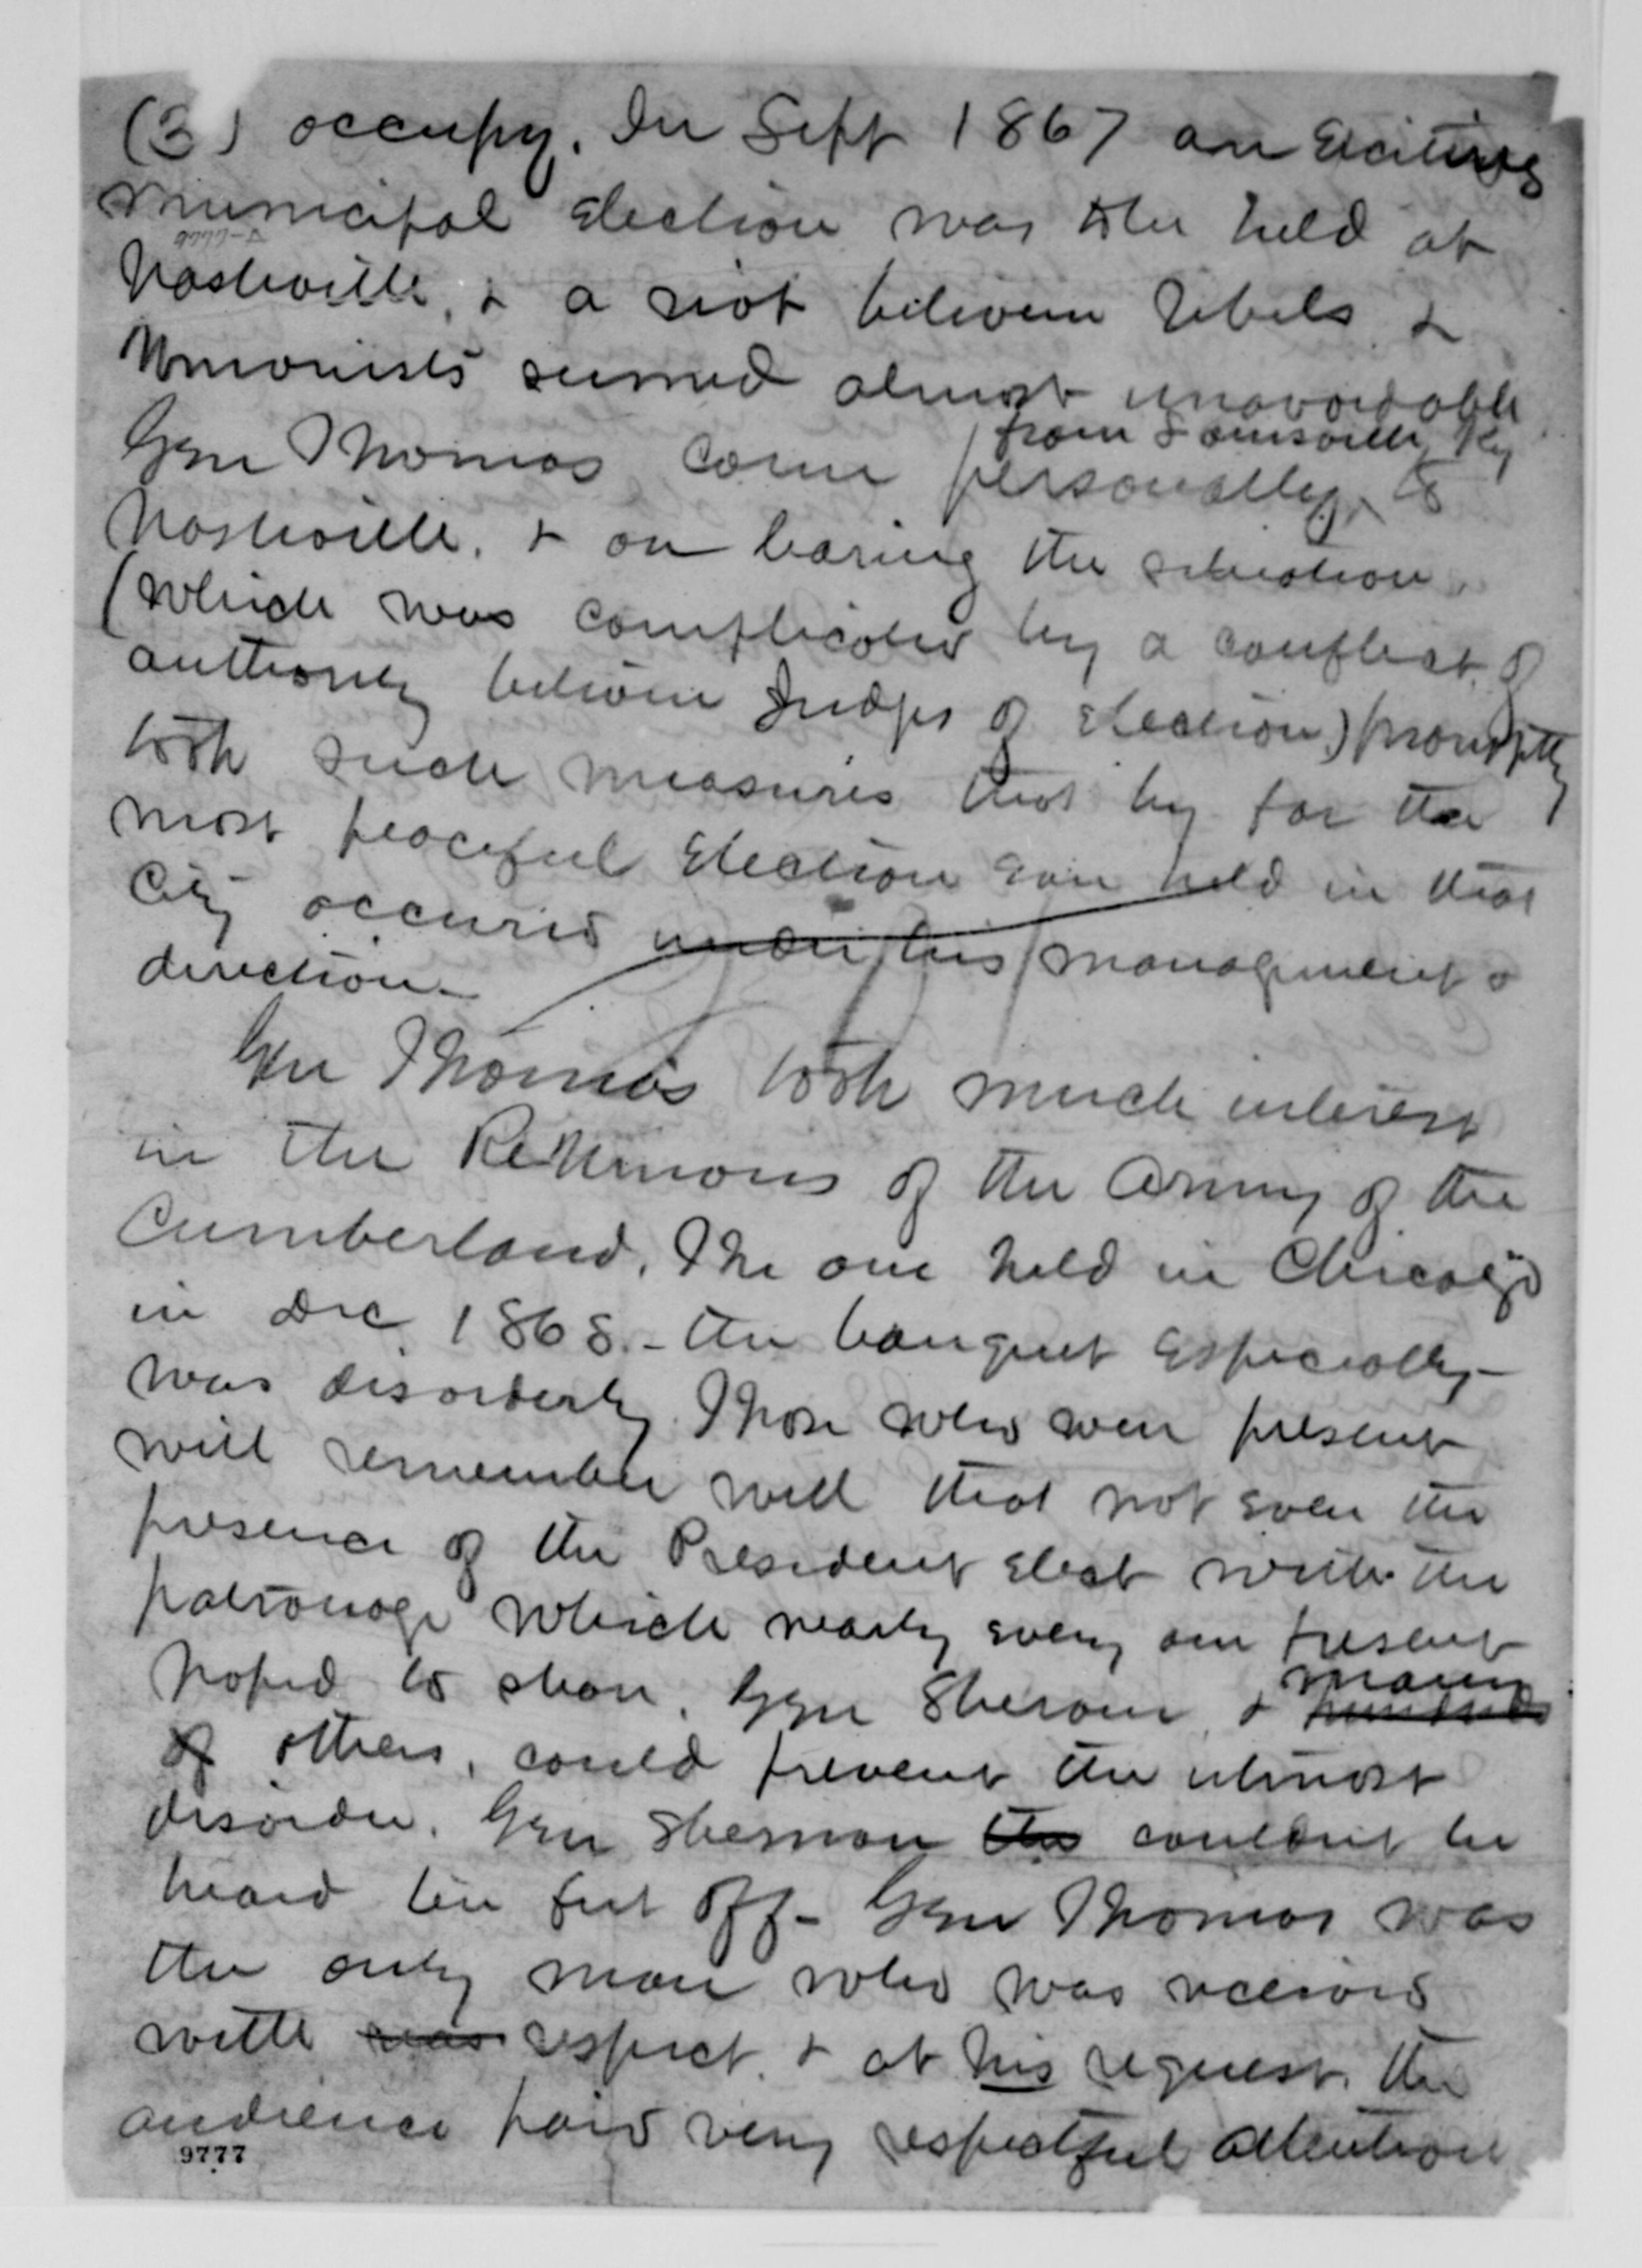 (3) occupy. In Sept 1867 an Exciting
Municipal Election was to be held at
Nashville, & a riot between Rebels &
Unionists seemed almost unavoidable
from Louisville, Ky
Gen Thomas came personally, to
Nashville, & on learing the situation,
(which was complicated by a conflict of
authority between Judges of Election) promptly
took such measures that by far the
most peaceful Election ever held in that
City occured under his management &
direction—
Gen Thomas took much interest
in the Re-Unions of the Army of the
Cumberland. The one held in Chicago
in Dec. 1868.— the banquet Especially—
was disorderly. Those who were present
will remember well that not even the
presence of the President Elect with the
patronage which nearly every one present
many
hoped to share, Gen Sherman, & hundreds
of others, could prevent the utmost
disorder. Gen Sherman couldnt be
heard ten feet off— Gen Thomas was
the only man who was received
with was respect, & at his request, the
audience paid very respectful attention
9777